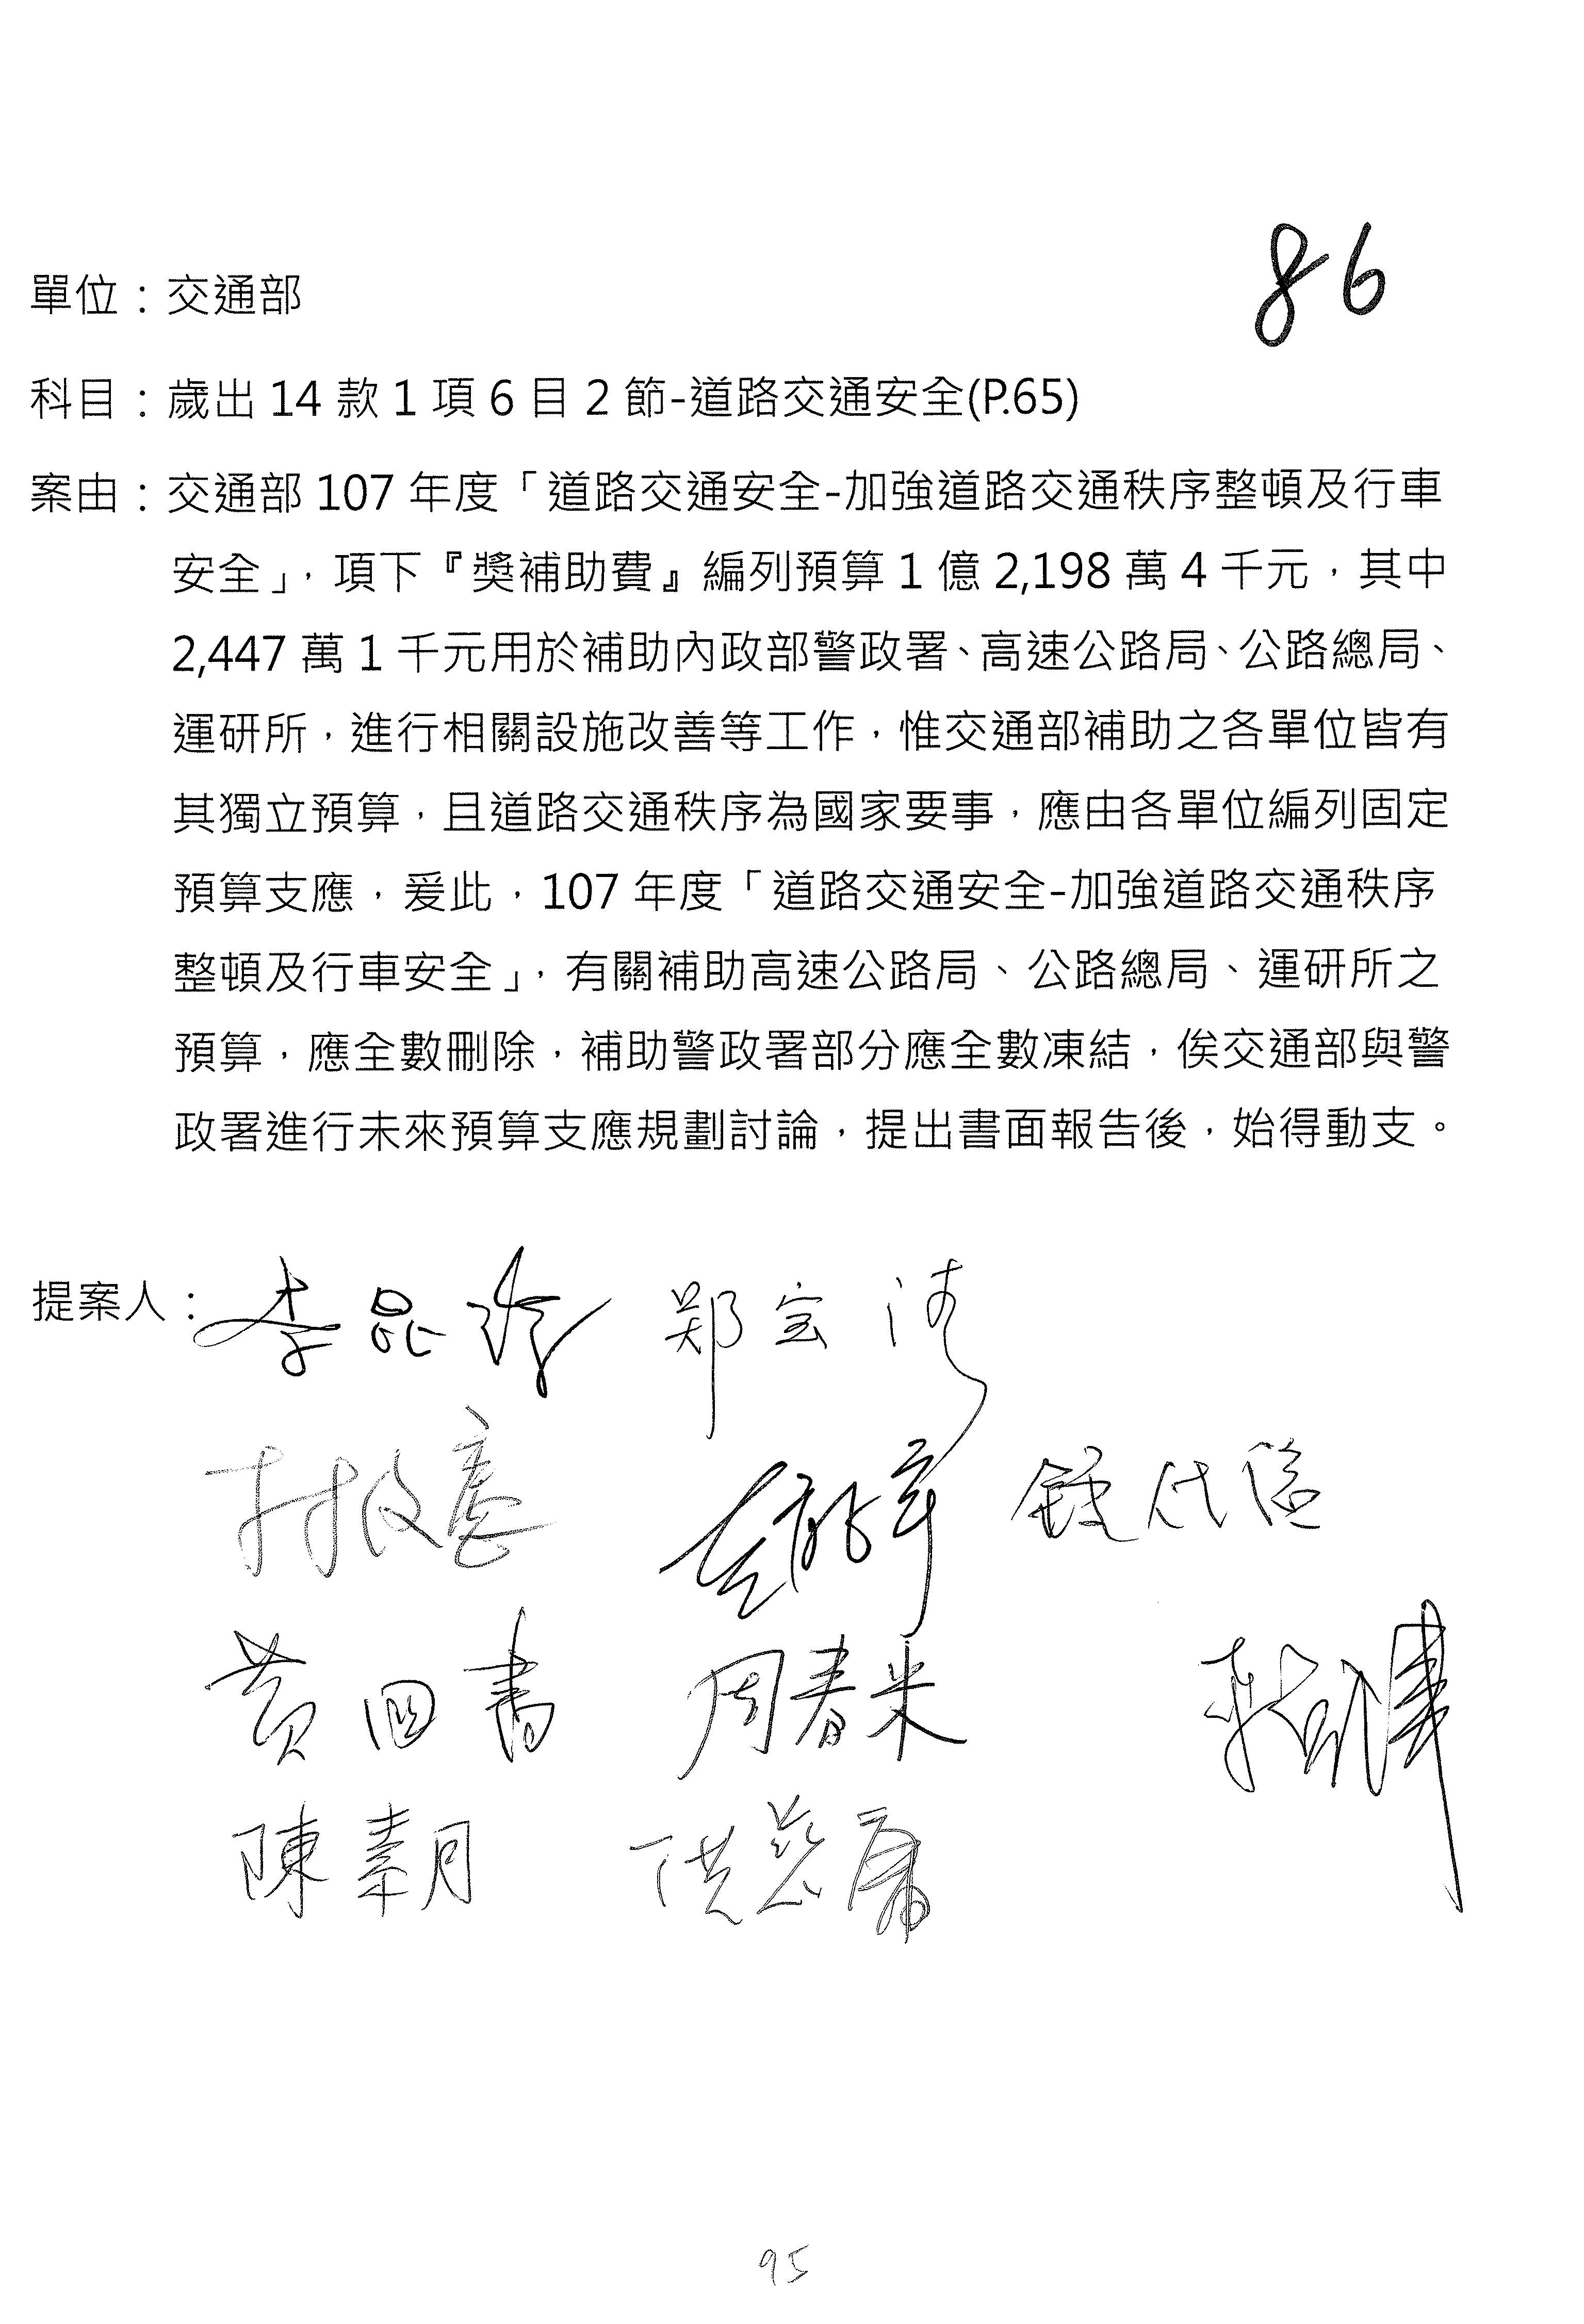 86
單位：交通部
科目：歲出 14 款 1 項 6 目 2 節-道路交通安全(P.65)
案由：交通部 107 年度「道路交通安全-加強道路交通秩序整頓及行車
安全」，項下『獎補助費』編列預算 1 億 2,198 萬 4 千元，其中
2,447 萬 1 千元用於補助內政部警政署、高速公路局、公路總局、
運研所，進行相關設施改善等工作，惟交通部補助之各單位皆有
其獨立預算，且道路交通秩序為國家要事，應由各單位編列固定
預算支應，爰此，107 年度「道路交通安全-加強道路交通秩序
整頓及行車安全」，有關補助高速公路局、公路總局、運研所之
預算，應全數刪除，補助警政署部分應全數凍結，俟交通部與警
政署進行未來預算支應規劃討論，提出書面報告後，始得動支。
提案人：李昆澤 鄭宝清
林俊憲
黃國書 周春米
陳素月 洪慈庸
95